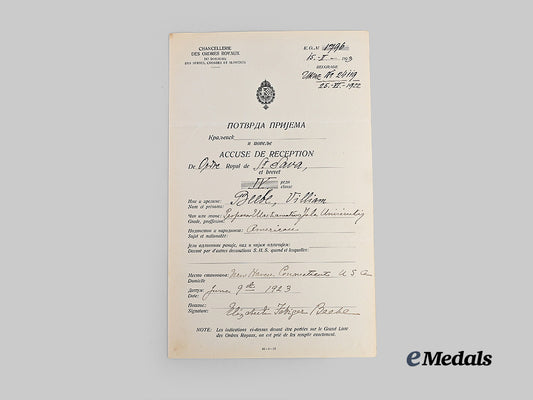 CHANCELLERIE
DES ORDRES ROYAUX
DU ROYAUME
DES SERBES, CROATES ET SLOVÈNES
K.O.№ 1796
15-I- 1923
BELGRADE
Ukaz № 24119
25-XI-1922
ПОТВРДА ПРИЈЕМА
Краљевск
и повеље
ACCUSE DE RECEPTION
De Ordre Royal de St Sava,
et brevet
IV реда
classe
Име и презиме:
Nom et prénoms: Beebe, Villiam
Чин или звање:
Grade, profession: Professor Mathematics Yale University
Поданство и народност:
Sujet et nationalité: American
Јели одликован раније, чиме и којим одличјем:
Decoré par d'autres decorations S.H.S. quand et lesquelles:
Место становања: New Haven Connecticut U S A
Domicile
Датум: June 9th 1923
Date:
Потпис:
Signature: Elizabeth Beebe
NOTE: Les indications ci-dessus devant être portées sur le Grand Livre
des Ordres Royaux, on est prié de les remplir exactement.
eMedals